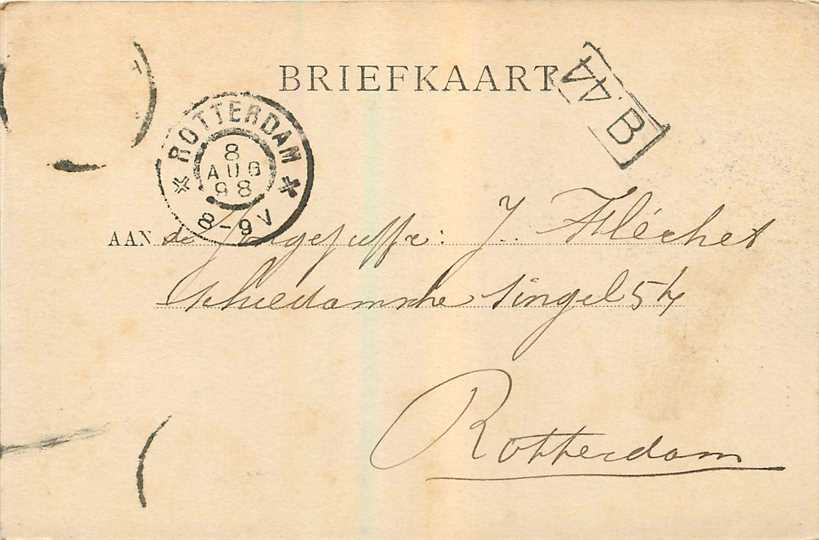 BRIEFKAART
44.B
ROTTERDAM
8
AUG
98
8-9V
AAN de Jongejuffr: J. Fléchet
Schiedamsche singel 54
Rotterdam